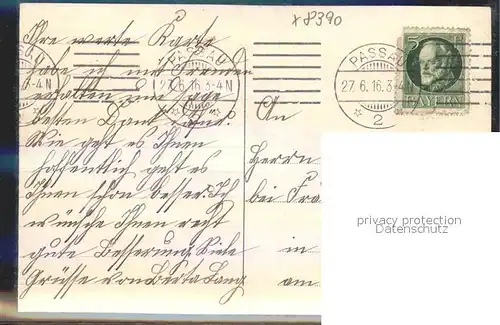 x8390
Ihre werte Karte
habe ich mit Freuden
erhalten und sage
besten Dank dafür.
Wie geht es Ihnen
hoffentlich geht es
Ihnen schon besser. Ich
wünsche Ihnen recht
gute Besserung. Viele
Grüsse von Berta Lang
PASSAU
27.6.16.3-4N
PASSAU
27.6.16.3-4
2
5
BAYERN
An
Herrn
bei
in
am
privacy protection
Datenschutz